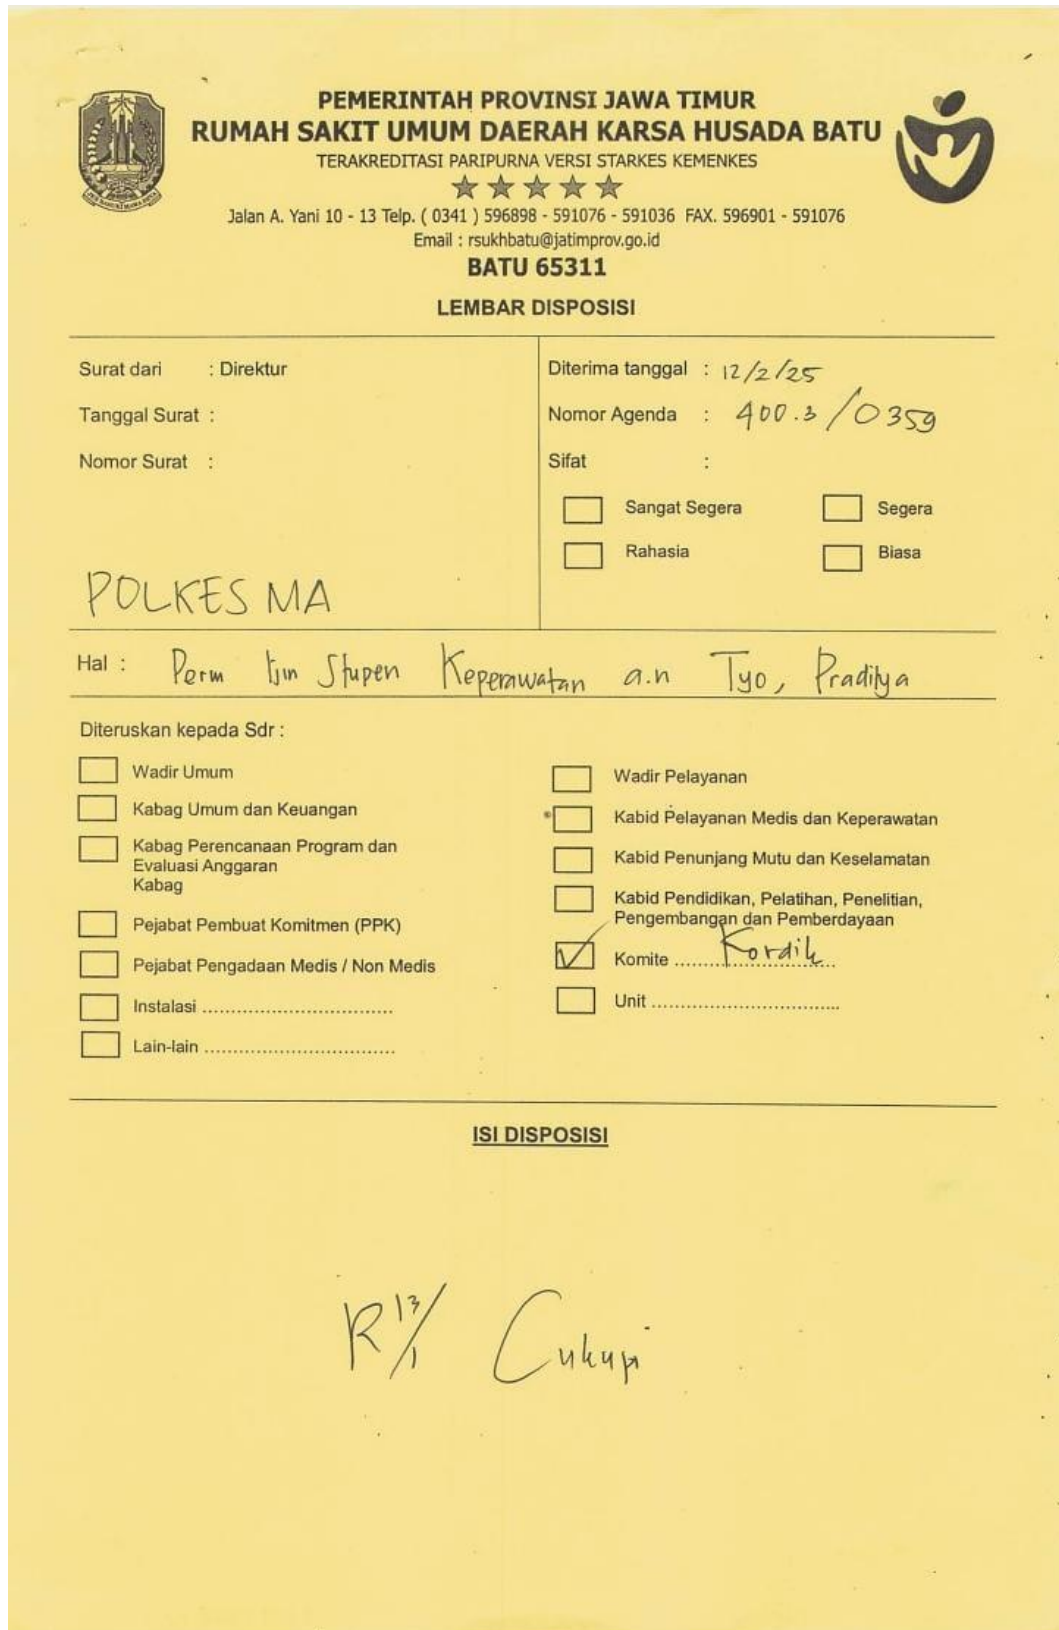 PEMERINTAH PROVINSI JAWA TIMUR
RUMAH SAKIT UMUM DAERAH KARSA HUSADA BATU
TERAKREDITASI PARIPURNA VERSI STARKES KEMENKES
Jalan A. Yani 10 - 13 Telp. ( 0341 ) 596898 - 591076 - 591036 FAX. 596901 - 591076
Email : rsukhbatu@jatimprov.go.id
BATU 65311
LEMBAR DISPOSISI
Surat dari : Direktur
Tanggal Surat :
Nomor Surat :
POLKES MA
Diterima tanggal : 12/2/25
Nomor Agenda : 400.3/0359
Sifat :
Sangat Segera
Segera
Rahasia
Biasa
Hal : Perm Ijin Stupen Keperawatan a.n Tyo, Praditya
Diteruskan kepada Sdr :
Wadir Umum
Kabag Umum dan Keuangan
Kabag Perencanaan Program dan
Evaluasi Anggaran
Kabag
Pejabat Pembuat Komitmen (PPK)
Pejabat Pengadaan Medis / Non Medis
Instalasi ................................
Lain-lain ................................
Wadir Pelayanan
Kabid Pelayanan Medis dan Keperawatan
Kabid Penunjang Mutu dan Keselamatan
Kabid Pendidikan, Pelatihan, Penelitian,
Pengembangan dan Pemberdayaan
Komite ..... Kordik
Unit ................................
ISI DISPOSISI
R 13/1 Cukupi